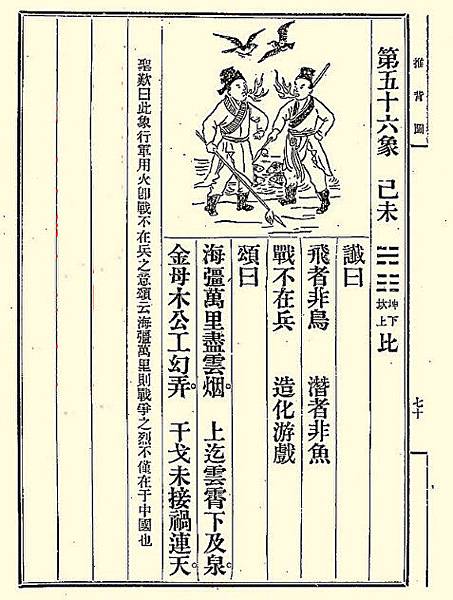 推背圖
七十
第五十六象 己未 坤下坎上 比
讖曰
飛者非鳥 潛者非魚
戰不在兵 造化游戲
頌曰
海疆萬里盡雲烟。 上迄雲霄下及泉。
金母木公工幻弄。 干戈未接禍連天。
聖歎曰此象行軍用火卽戰不在兵之意頌云海疆萬里則戰爭之烈不僅在于中國也